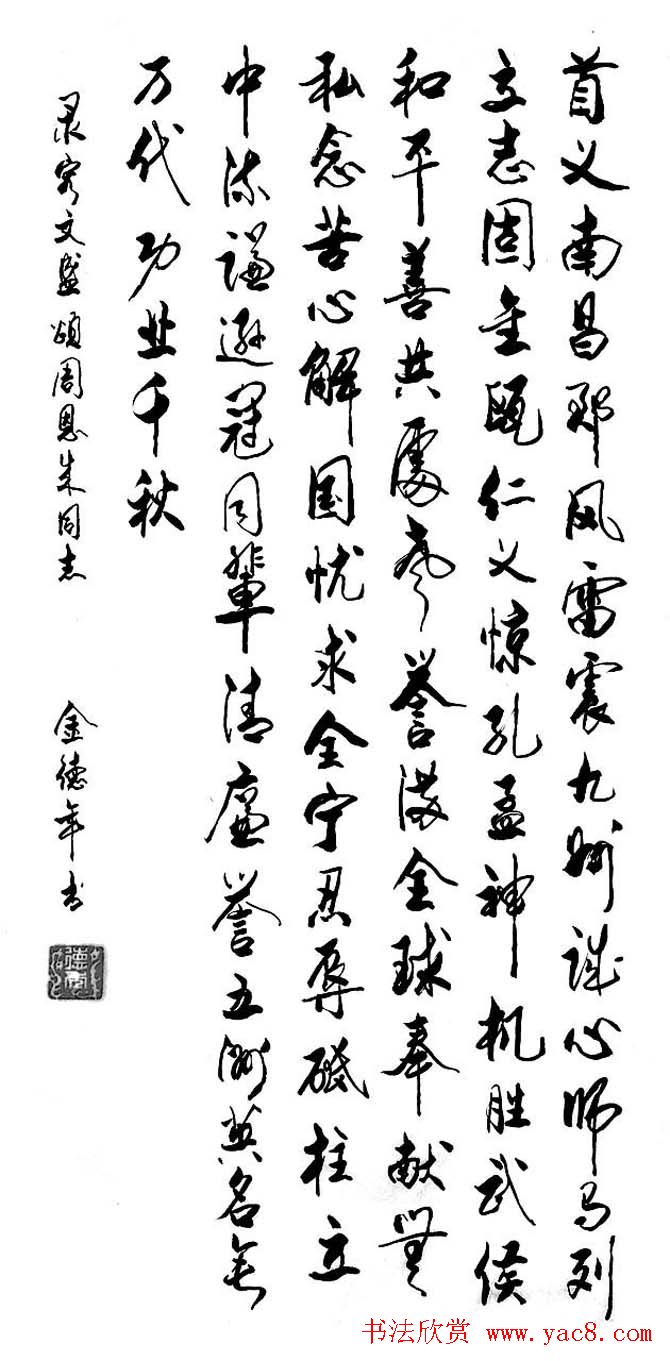 首义南昌郡风雷震九州诚心师马列
立志固金瓯仁义惊孔孟神机胜武侯
和平善共處声誉满全球奉献無
私念苦心解国忧求全宁忍辱砥柱立
中流谦逊冠同輩清廉誉五洲英名垂
万代功业千秋
录容文盛颂周恩来同志
金德年书
书法欣赏 www.yac8.com